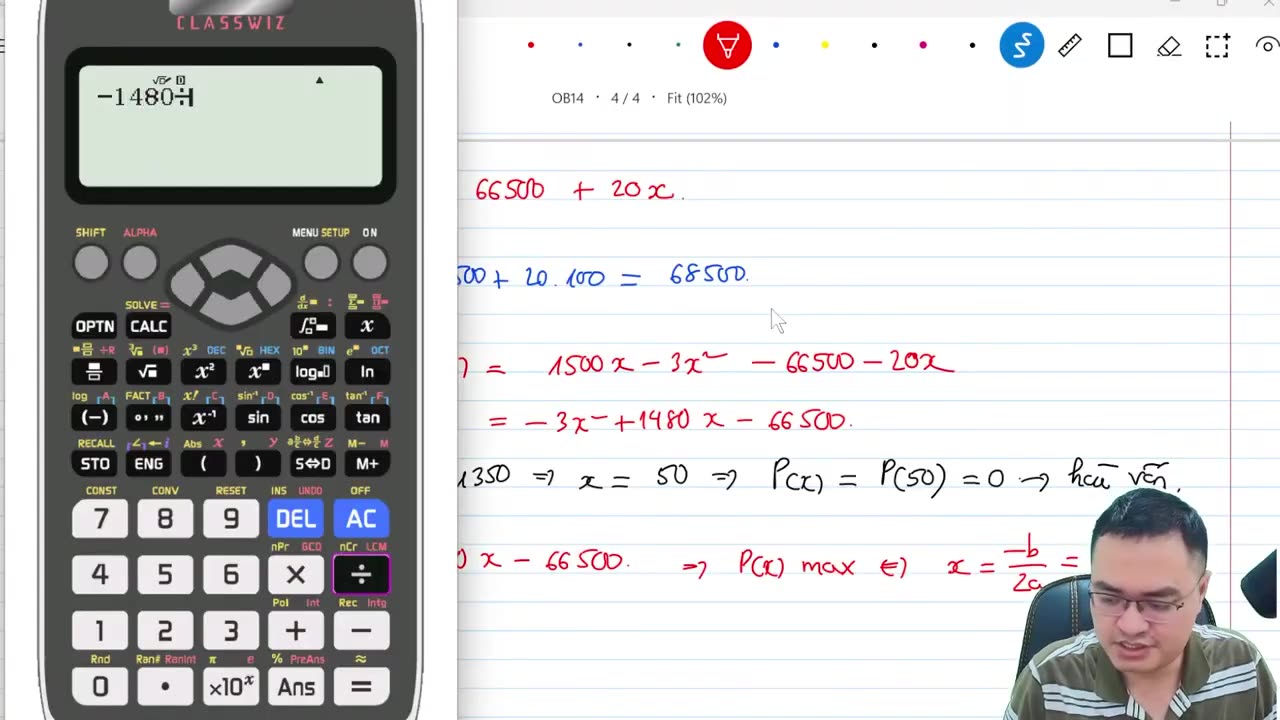 CLASSWIZ
−1480÷
OB14 · 4 / 4 · Fit (102%)
66500 + 20x.
500 + 20.100 = 68500.
) = 1500x − 3x² − 66500 − 20x
= −3x² + 1480x − 66500.
1350 ⇒ x = 50 ⇒ P(x) = P(50) = 0 → hoà vốn.
0x − 66500. ⇒ P(x) max ⇔ x = −b/2a =
SHIFT ALPHA MENU SETUP ON
SOLVE = :
OPTN CALC x
÷R x³ DEC HEX 10■ BIN e■ OCT
x² x■ log ln
log A FACT B x! C sin⁻¹ D cos⁻¹ E tan⁻¹ F
(−) ° ’ ” x⁻¹ sin cos tan
RECALL ∠ ← i Abs x , y z M− M
STO ENG ( ) S⇔D M+
CONST CONV RESET INS UNDO OFF
7 8 9 DEL AC
nPr GCD nCr LCM
4 5 6 × ÷
Pol Int Rec Intg
1 2 3 + −
Rnd Ran# RanInt π e % PreAns ≈
0 • ×10ˣ Ans =